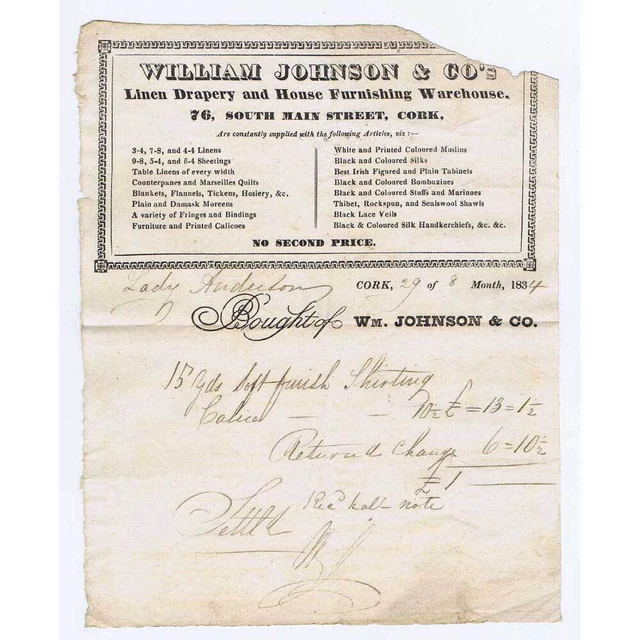 WILLIAM JOHNSON & CO's
Linen Drapery and House Furnishing Warehouse,
76, SOUTH MAIN STREET, CORK,
Are constantly supplied with the following Articles, viz :—
3-4, 7-8, and 4-4 Linens
9-8, 5-4, and 6-4 Sheetings
Table Linens of every width
Counterpanes and Marseilles Quilts
Blankets, Flannels, Tickens, Hosiery, &c.
Plain and Damask Moreens
A variety of Fringes and Bindings
Furniture and Printed Calicoes
White and Printed Coloured Muslins
Black and Coloured Silks
Best Irish Figured and Plain Tabinets
Black and Coloured Bombazines
Black and Coloured Stuffs and Marinoes
Thibet, Rockspun, and Sealswool Shawls
Black Lace Veils
Black & Coloured Silk Handkerchiefs, &c. &c.
NO SECOND PRICE.
Lady Anderson CORK, 29 of 8 Month, 1834
Bought of WM. JOHNSON & CO.
15 Yds Soft finish Shirting
Calico — - 10½ £ =13=1½
Returned Change 6=10½
£1
Recd half note
Settld
WJ